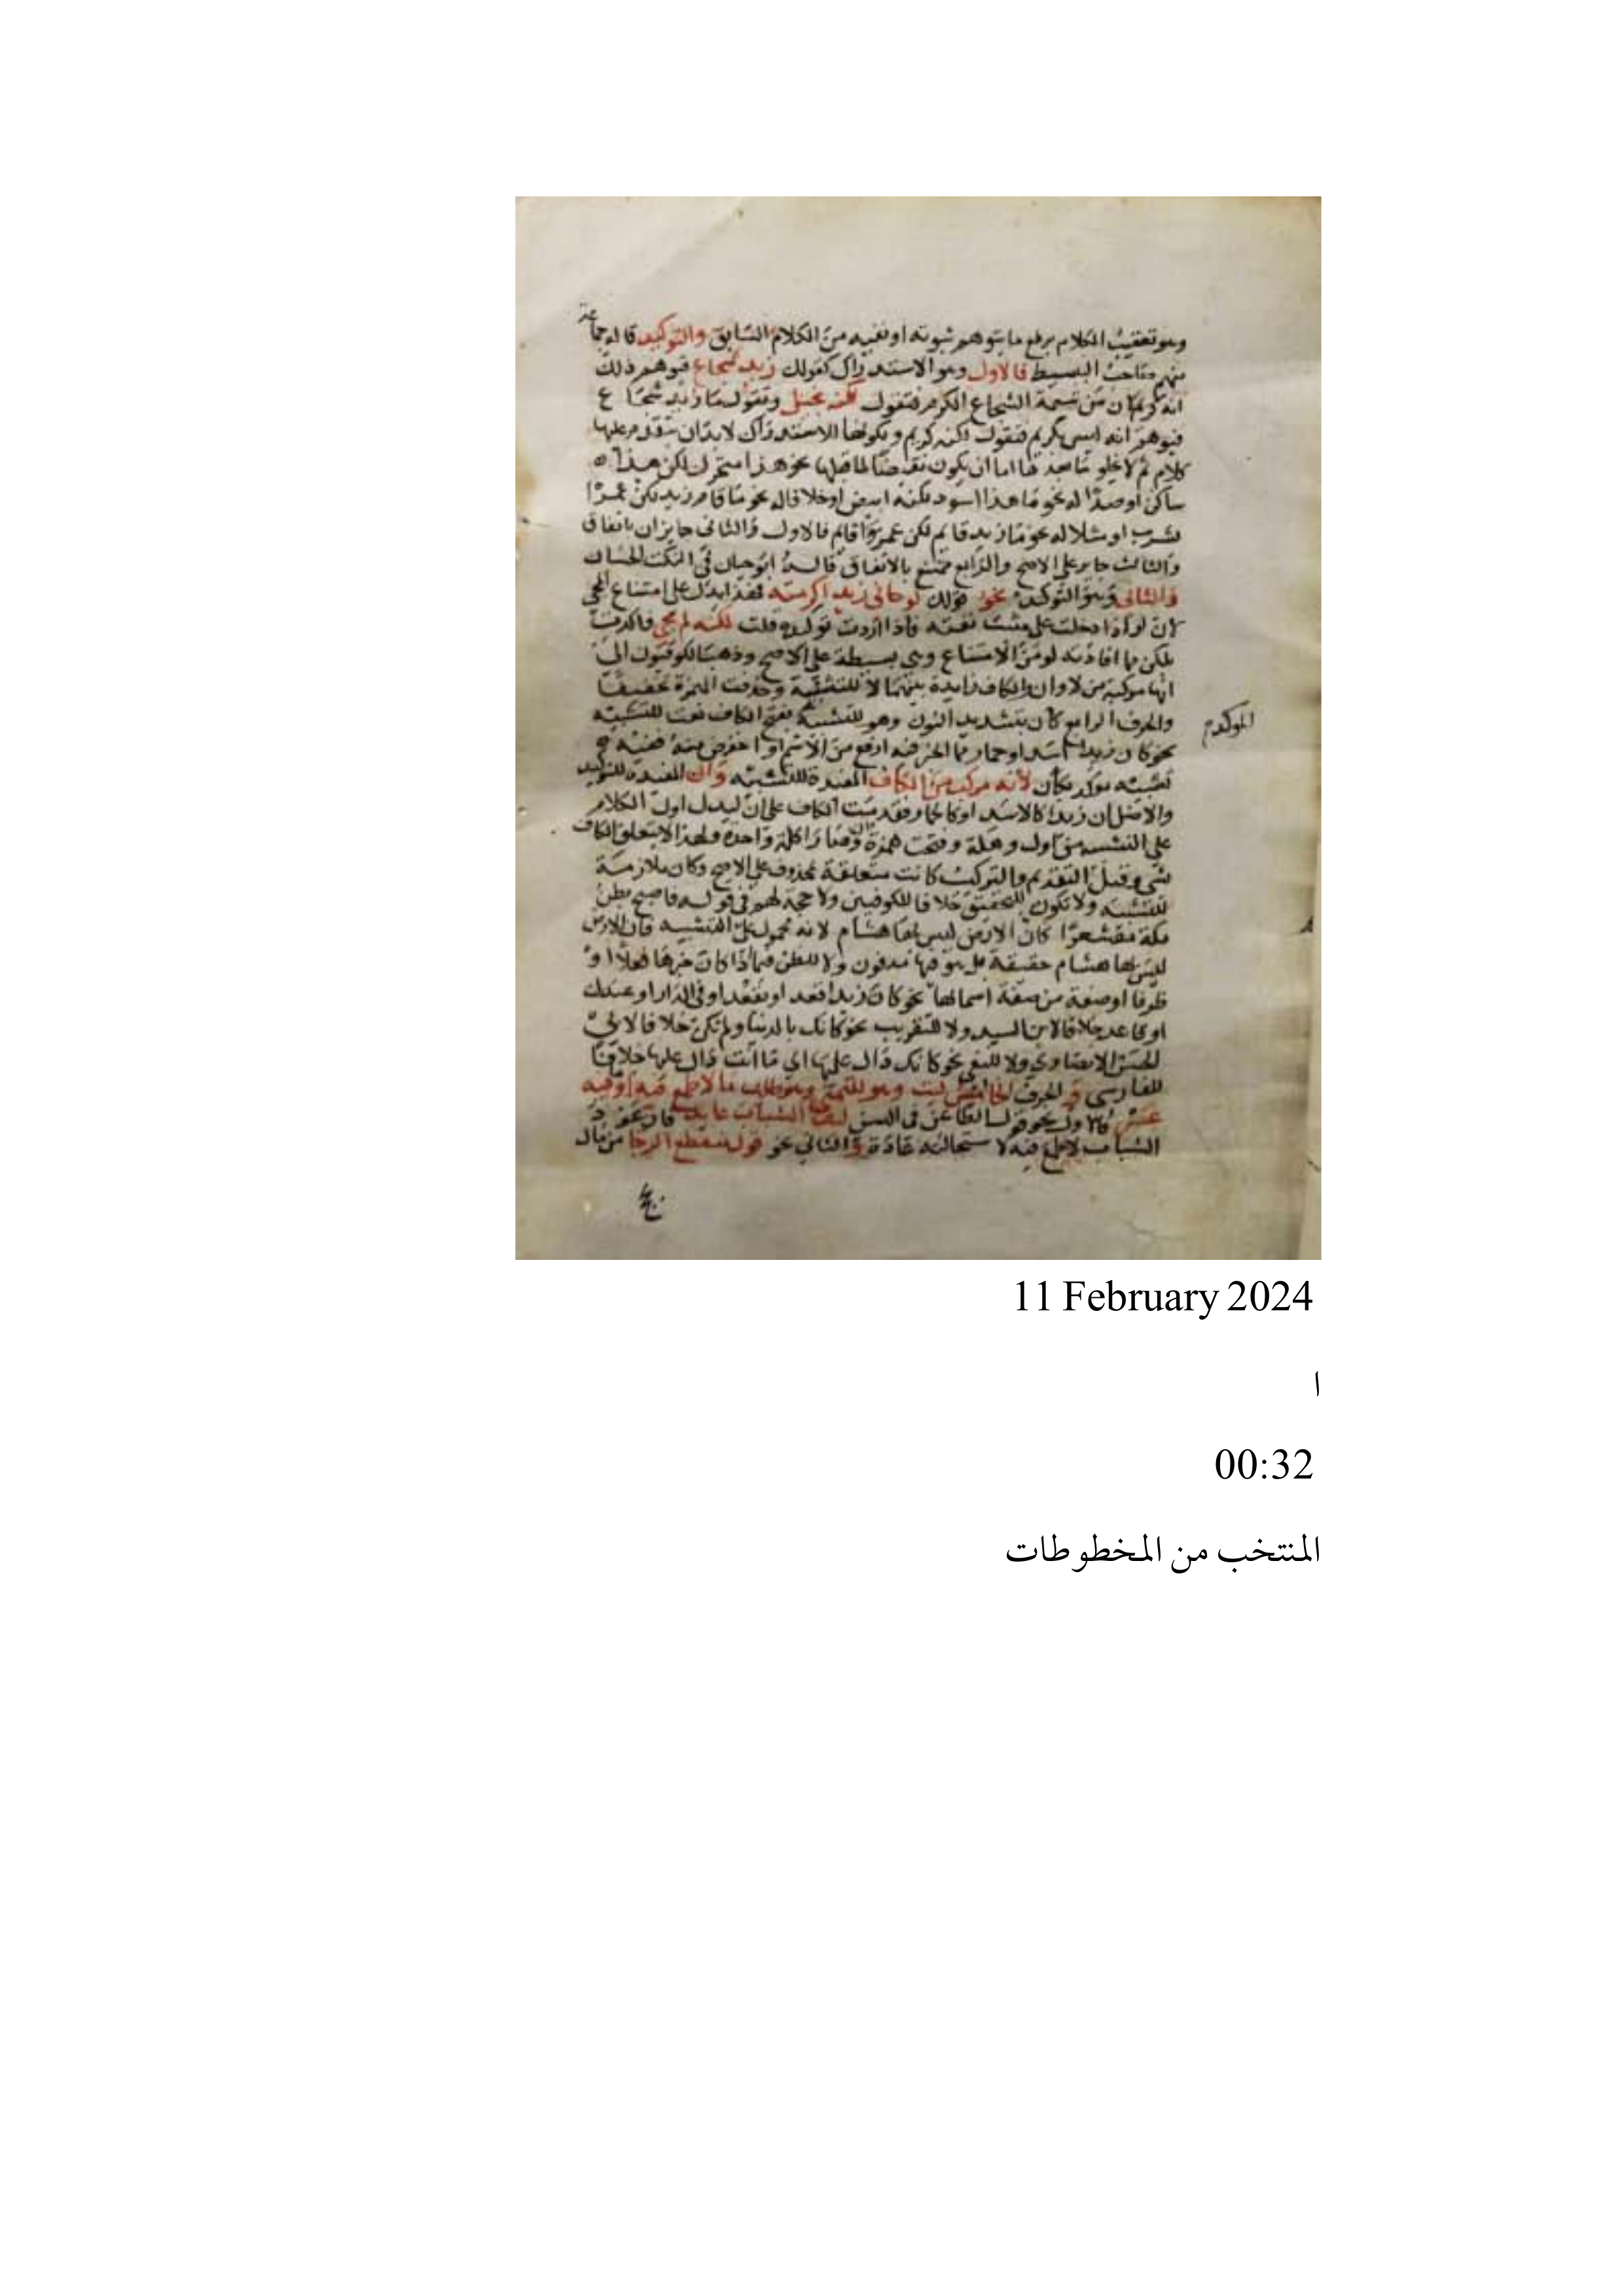 وهو تعقيب الكلام برفع ما يتوهم ثبوته او نفيه من الكلام السابق والتوكيد قاله جماعة
منهم صاحب البسيط فالاول وهو الاستدراك كقولك زيد شجاع فيوهم ذلك
انه كريم لان من شيمة الشجاع الكرم فتقول لكنه بخيل وتقول ما زيد شجاع
فيوهم انه ليس بكريم فتقول لكنه كريم وبكونها الاستدراك لا بد ان يتقدم عليها
كلام ثم لا يخلو ما بعدها اما ان يكون نقيضا لما قبلها نحو هذا متحرك لكن هذا
ساكن او ضدا له نحو ما هذا اسود لكنه ابيض او خلافا له نحو ما قام زيد لكن عمرا
شرب او مثلا له نحو ما زيد قايم لكن عمروا قايم فالاول والثاني جايزان باتفاق
والثالث جايز على الاصح والرابع ممتنع بالاتفاق قاله ابو حيان في النكت الحسان
والثاني وهو التوكيد نحو قولك لو جاني زيد اكرمته فقد يدل على امتناع المجي
لان لو اذا دخلت على مثبت نفته فاذا اردت توكيده قلت لكنه لم يجي فاكدت
بلكن ما افادته لو من الامتناع وهي بسيطة على الاصح وذهب الكوفيون الى
انها مركبة من لا وان والكاف زايدة بينهما لا للتشبيه وحذفت الهمزة تخفيفا
والحرف الرابع كان بتشديد النون وهو للتشبيه بفتح الكاف نعت للتشبيه
الموكد م
نحو كان زيدا اسد او حمار مما الخبر فيه ارفع من الاسم او اخفض منه ففيه
تشبيه موكد بكان لانه مركب من الكاف المفيدة للتشبيه وان المفيدة للتوكيد
والاصل ان زيدا كالاسد او كالحمار فقدمت الكاف على ان ليدل اول الكلام
على التشبيه من اول وهلة وفتحت همزة ان وصارا كلمة واحدة ولهذا لا يتعلق الكاف
بشي وقبل التقديم والتركيب كانت متعلقة بمحذوف على الاصح وكان ملازمة
للتشبيه ولا تكون للتحقيق خلافا للكوفيين ولا حجة لهم في قوله فاصبح بطن
مكة مقشعرا كان الارض ليس بها هشام لانه محمول على التشبيه فان الارض
ليس بها هشام حقيقة بل هو فيها مدفون ولا للظن فيما اذا كان خبرها فعلا او
ظرفا او صفة من صفة اسمائها نحو كان زيدا قعد او يقعد او في الدار او عندك
او قاعد خلافا لابن السيد ولا للتقريب نحو كانك بالدنيا ولم تكن خلافا لابي
الحسن الانصاري ولا للنفي نحو كانك دال عليها اي ما انت دال عليها خلافا
للفارسي و الحرف الخامس ليت وهو للتمني وهو طلب ما لا طمع فيه او فيه
عسر فالاول نحو قول الطاعن في السن ليت الشباب عايد فان عود
الشباب لا طمع فيه لاستحالته عادة والثاني نحو قول منقطع الرجا من مال
11 February 2024
ا
00:32
المنتخب من المخطوطات